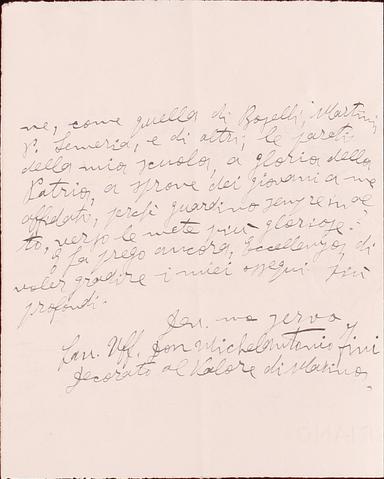 ne, come quella di Boselli, Martini,
P. Semeria, e di altri, le pareti
della mia scuola, a gloria della
Patria, a sprone dei giovani a me
affidati, perché guardino sempre in al
to, verso le mete più gloriose.
E La prego ancora, Eccellenza, di
voler gradire i miei ossequi più
profondi.
Dev. mo servo
Cav. Uff. Don Michelantonio Fini
decorato al Valore di Marina.